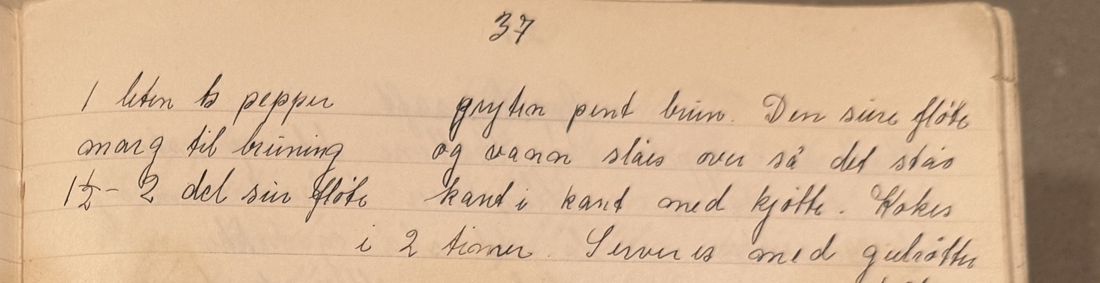 37
1 liten ts pepper
marg til bruning
1½-2 del sur fløte
gryten pent brun. Den sure fløte
og vann slåes over så det står
kant i kant med kjøtte. Kokes
i 2 timer. Serveres med gulrøtter